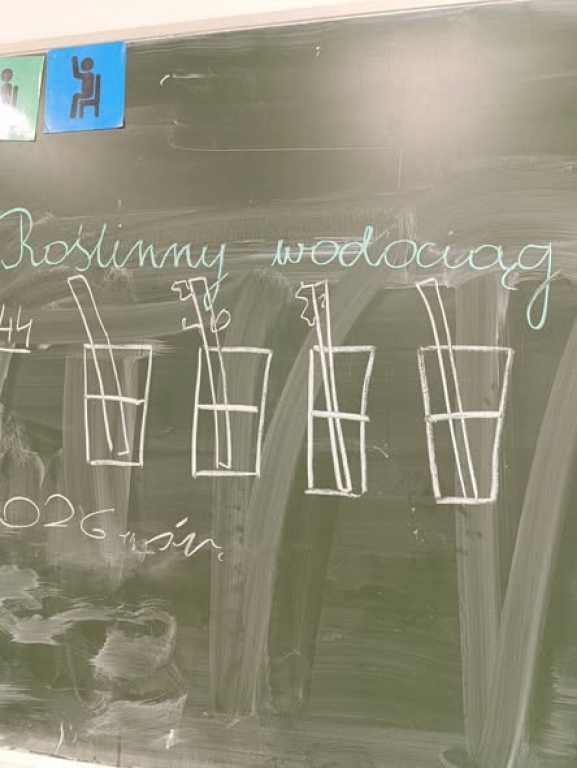 Roślinny wodociąg
44
026